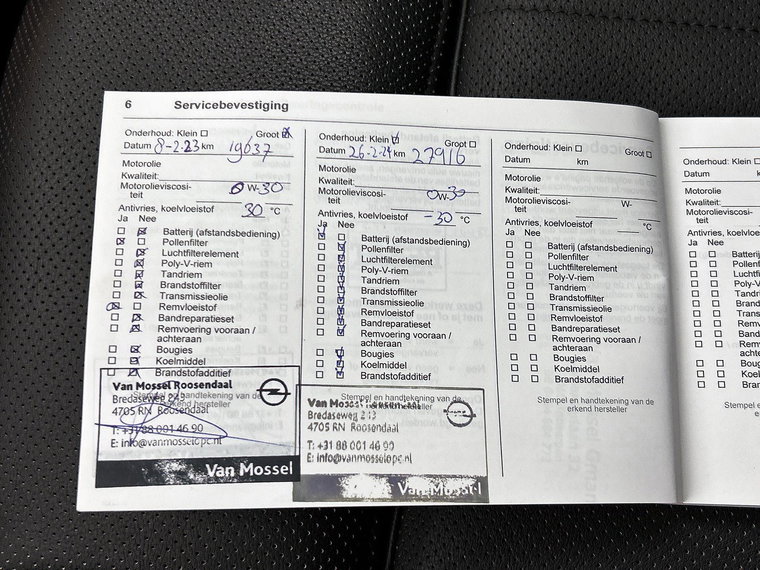 6 Servicebevestiging
Onderhoud: Klein ☐ Groot ☒
Datum 8-2-23 km 19637
Motorolie
Kwaliteit:
Motorolieviscosi-
teit 0 W-30
Antivries, koelvloeistof 30 °C
Ja Nee
☐ ☒ Batterij (afstandsbediening)
☒ ☐ Pollenfilter
☐ ☒ Luchtfilterelement
☐ ☒ Poly-V-riem
☐ ☒ Tandriem
☐ ☒ Brandstoffilter
☐ ☒ Transmissieolie
☒ ☐ Remvloeistof
☐ ☒ Bandreparatieset
☐ ☒ Remvoering vooraan /
achteraan
☐ ☒ Bougies
☐ ☒ Koelmiddel
☐ ☒ Brandstofadditief
Stempel en handtekening van de
erkend hersteller
Van Mossel Roosendaal
Bredaseweg 213
4705 RN Roosendaal
T: +31 88 001 46 90
E: info@vanmosselopel.nl
Van Mossel
Onderhoud: Klein ☑ Groot ☐
Datum 26-2-24 km 27916
Motorolie
Kwaliteit:
Motorolieviscosi-
teit 0W-30
Antivries, koelvloeistof -30 °C
Ja Nee
☑ ☐ Batterij (afstandsbediening)
☐ ☑ Pollenfilter
☐ ☑ Luchtfilterelement
☐ ☑ Poly-V-riem
☐ ☑ Tandriem
☐ ☑ Brandstoffilter
☐ ☑ Transmissieolie
☐ ☑ Remvloeistof
☐ ☑ Bandreparatieset
☐ ☑ Remvoering vooraan /
achteraan
☐ ☑ Bougies
☐ ☑ Koelmiddel
☐ ☑ Brandstofadditief
Stempel en handtekening van de
erkend hersteller
Van Mossel Roosendaal
Bredaseweg 213
4705 RN Roosendaal
T: +31 88 001 46 90
E: info@vanmosselopel.nl
Van Mossel
Onderhoud: Klein ☐ Groot ☐
Datum km
Motorolie
Kwaliteit:
Motorolieviscosi-
teit W-
Antivries, koelvloeistof °C
Ja Nee
☐ ☐ Batterij (afstandsbediening)
☐ ☐ Pollenfilter
☐ ☐ Luchtfilterelement
☐ ☐ Poly-V-riem
☐ ☐ Tandriem
☐ ☐ Brandstoffilter
☐ ☐ Transmissieolie
☐ ☐ Remvloeistof
☐ ☐ Bandreparatieset
☐ ☐ Remvoering vooraan /
achteraan
☐ ☐ Bougies
☐ ☐ Koelmiddel
☐ ☐ Brandstofadditief
Stempel en handtekening van de
erkend hersteller
Onderhoud: Klein ☐
Datum
Motorolie
Kwaliteit:
Motorolieviscosi-
teit
Antivries, koelvloei
Ja Nee
☐ ☐ Batterij
☐ ☐ Pollenf
☐ ☐ Luchtf
☐ ☐ Poly-V
☐ ☐ Tandri
☐ ☐ Brands
☐ ☐ Transm
☐ ☐ Remvl
☐ ☐ Bandr
☐ ☐ Remv
achter
☐ ☐ Boug
☐ ☐ Koel
☐ ☐ Bran
Stempel en h
er